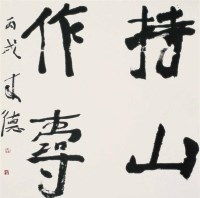 持山
作壽
丙戌 德